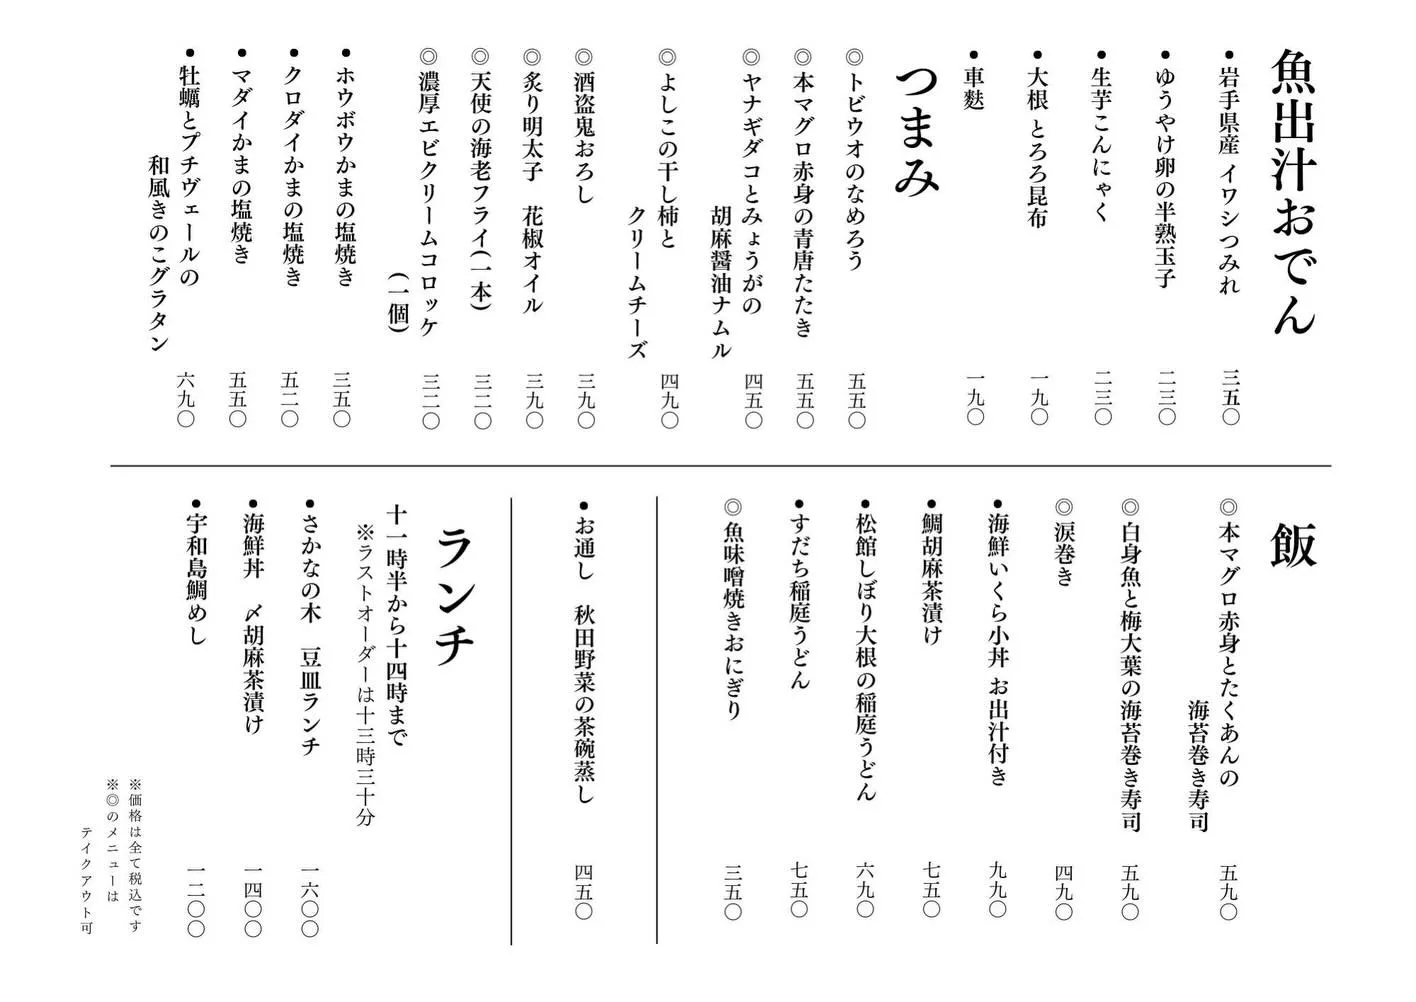 魚出汁おでん
●岩手県産 イワシつみれ 三五〇
●ゆうやけ卵の半熟玉子 二三〇
●生芋こんにゃく 二三〇
●大根 とろろ昆布 一九〇
●車麩 一九〇
つまみ
◎トビウオのなめろう 五五〇
◎本マグロ赤身の青唐たたき 五五〇
◎ヤナギダコとみょうがの
胡麻醤油ナムル 四五〇
◎よしこの干し柿と
クリームチーズ 四九〇
◎酒盗鬼おろし 三九〇
◎炙り明太子 花椒オイル 三九〇
◎天使の海老フライ(一本) 三二〇
◎濃厚エビクリームコロッケ
(一個) 三二〇
●ホウボウかまの塩焼き 三五〇
●クロダイかまの塩焼き 五二〇
●マダイかまの塩焼き 五五〇
●牡蠣とプチヴェールの
和風きのこグラタン 六九〇
飯
◎本マグロ赤身とたくあんの
海苔巻き寿司 五九〇
◎白身魚と梅大葉の海苔巻き寿司 五九〇
◎涙巻き 四九〇
●海鮮いくら小丼 お出汁付き 九九〇
●鯛胡麻茶漬け 七五〇
●松館しぼり大根の稲庭うどん 六九〇
●すだち稲庭うどん 七五〇
◎魚味噌焼きおにぎり 三五〇
●お通し 秋田野菜の茶碗蒸し 四五〇
ランチ
十一時半から十四時まで
※ラストオーダーは十三時三十分
●さかなの木 豆皿ランチ 一六〇〇
●海鮮丼 〆胡麻茶漬け 一四〇〇
●宇和島鯛めし 一二〇〇
※価格は全て税込です
※◎のメニューは
テイクアウト可